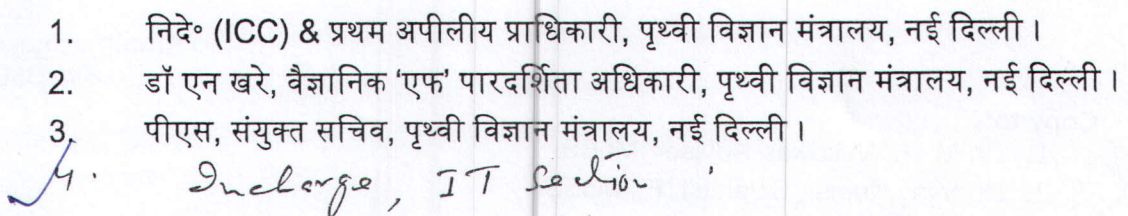 1. निदे॰ (ICC) & प्रथम अपीलीय प्राधिकारी, पृथ्वी विज्ञान मंत्रालय, नई दिल्ली।
2. डॉ एन खरे, वैज्ञानिक 'एफ' पारदर्शिता अधिकारी, पृथ्वी विज्ञान मंत्रालय, नई दिल्ली।
3. पीएस, संयुक्त सचिव, पृथ्वी विज्ञान मंत्रालय, नई दिल्ली।
4. Incharge, IT Section